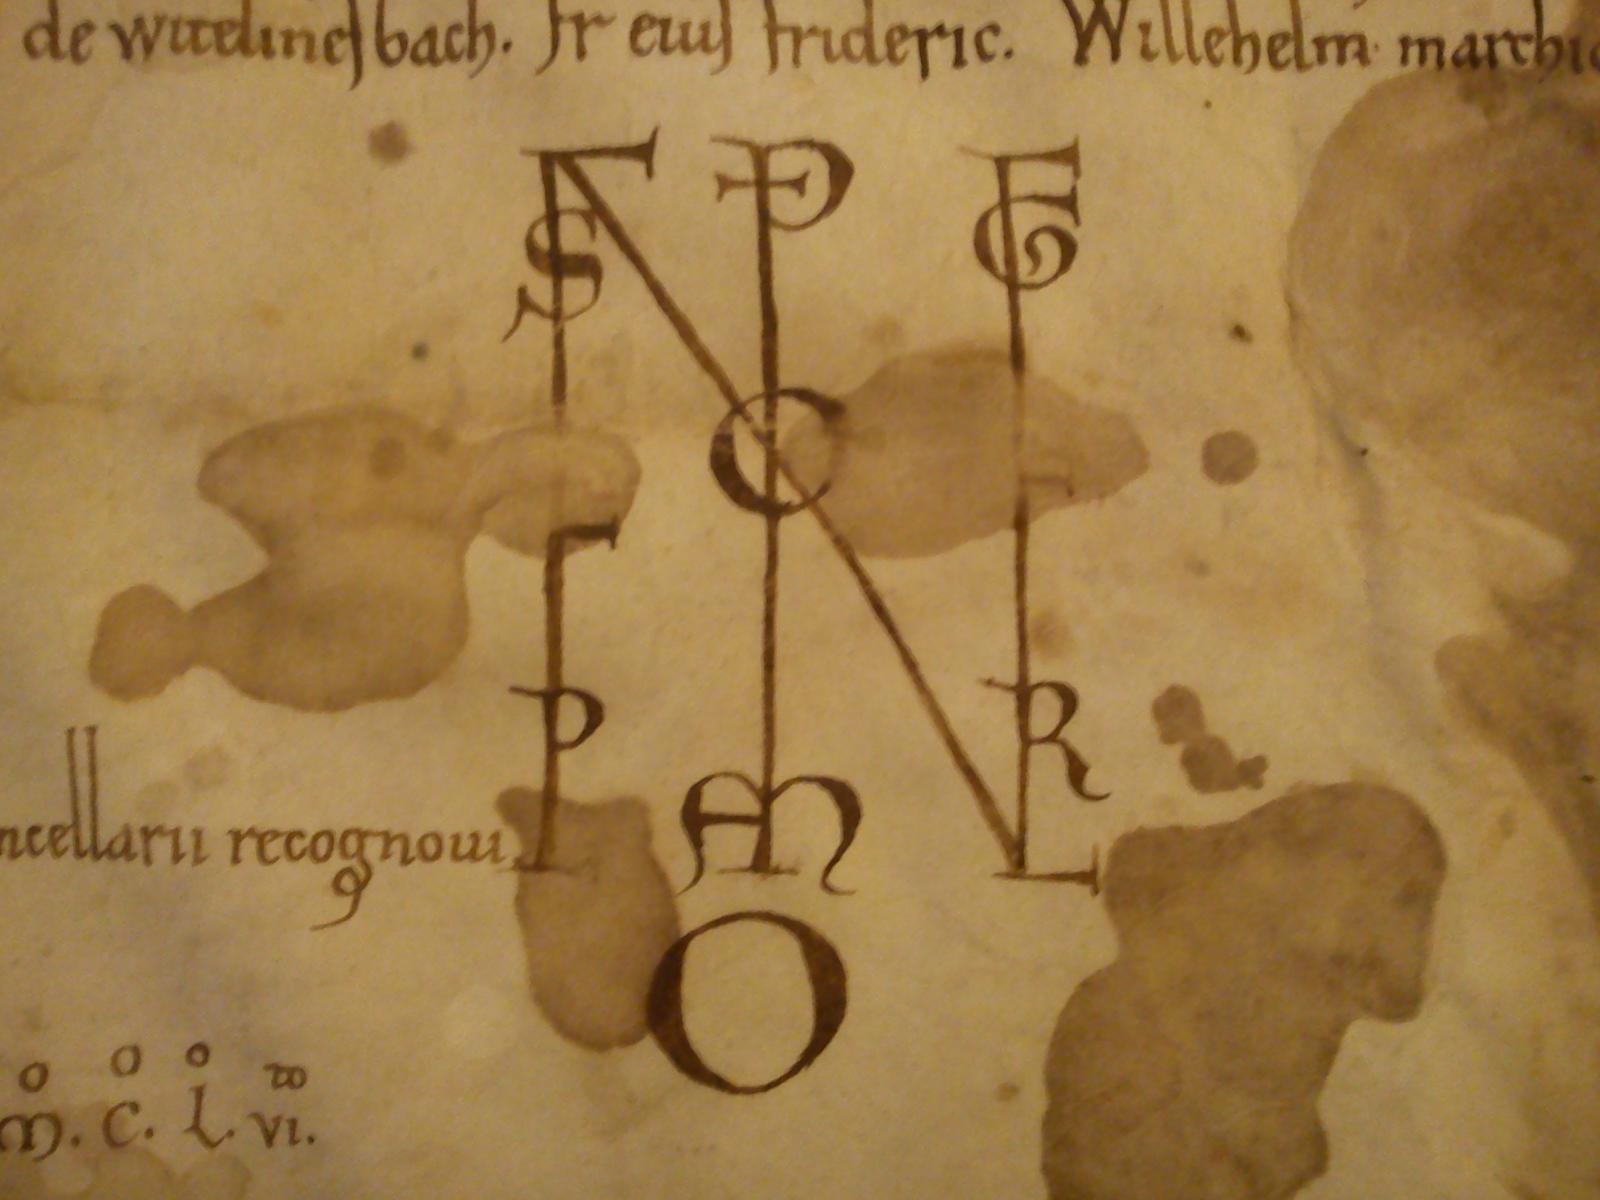 de witelinesbach. fr eius frideric. Willehelm marchio
S P E G
C
P R
M
L
O
ncellarii recognoui
o o o to
M. C. L. VI.